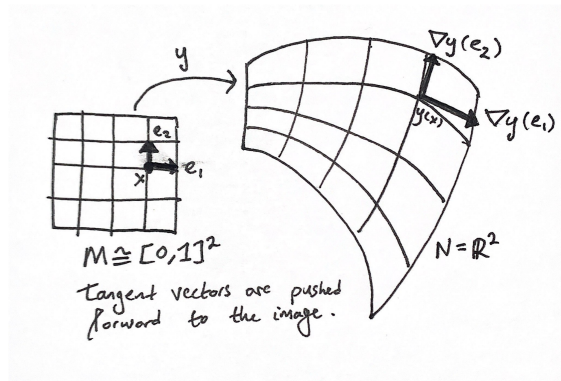 y
∇y(e₂)
y(x)
∇y(e₁)
e₂
x
e₁
M ≅ [0,1]²
N = ℝ²
tangent vectors are pushed
forward to the image.